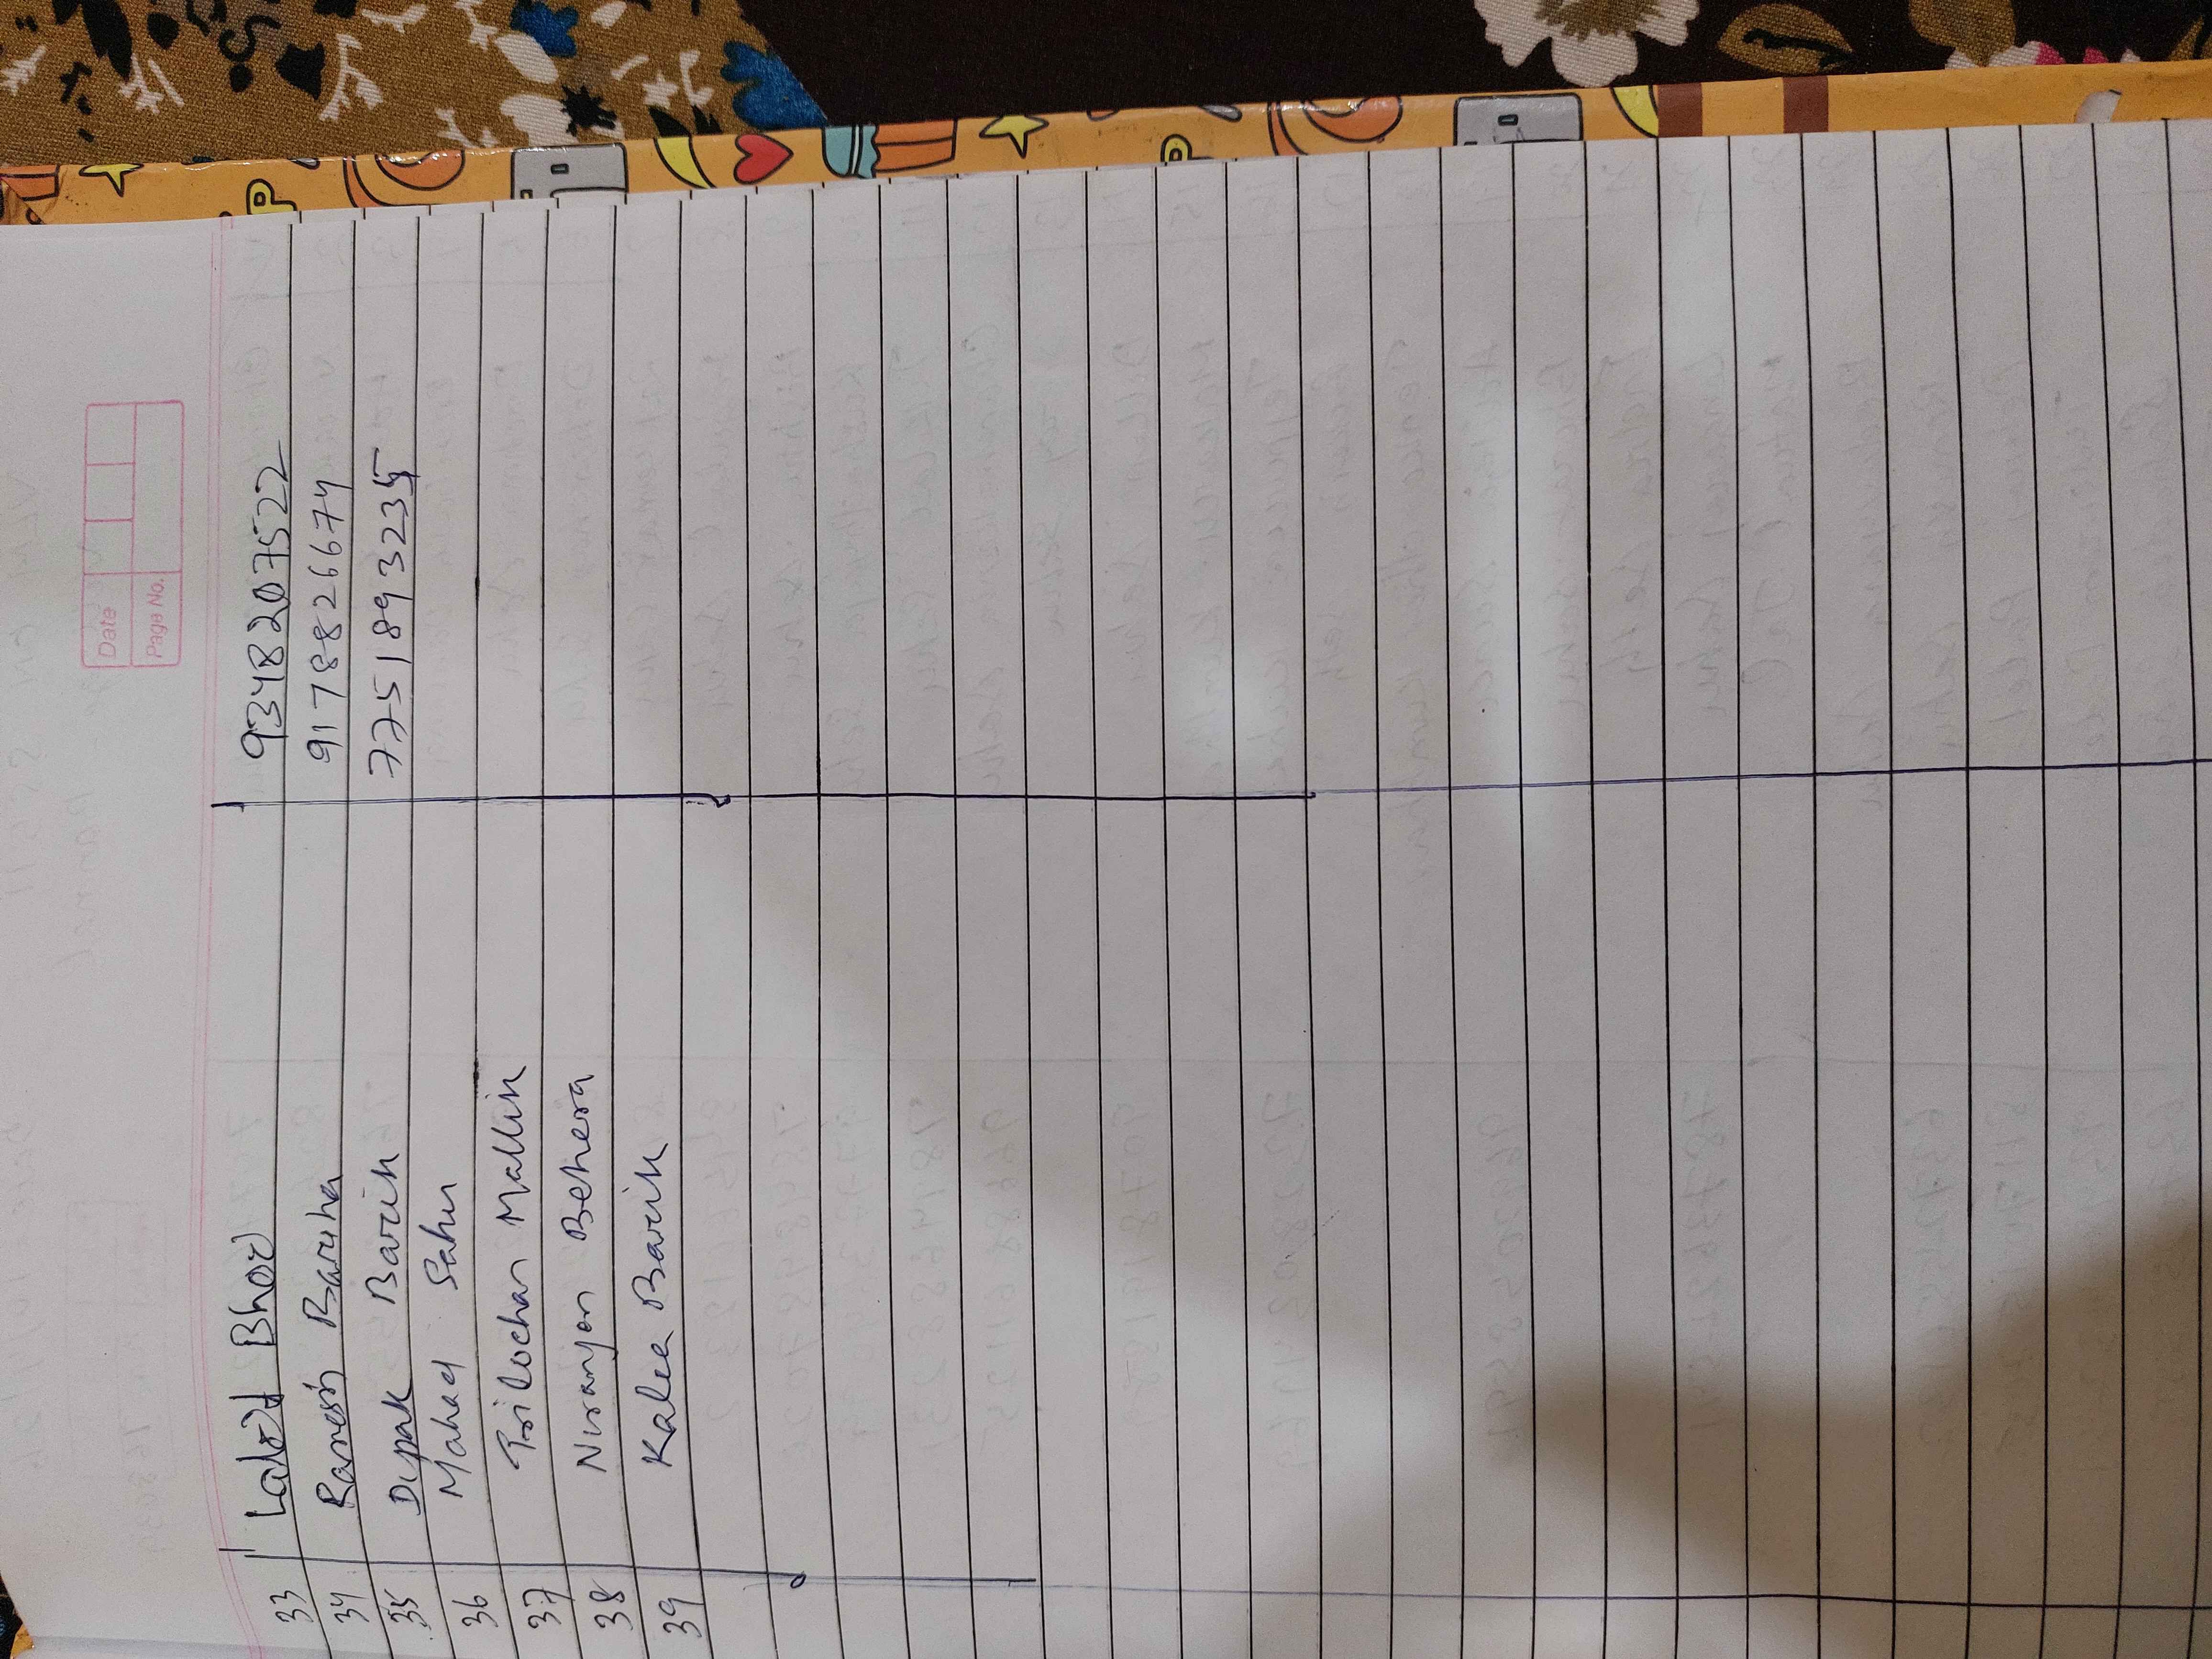 Date
Page No.
33 Lalit Bhoi 9348207522
34 Ramesh Bariha 9178826674
35 Dipak Barik 7751893235
36 Mahad Sahu
37 Trilochan Mallik
38 Niranjan Behera
39 Kalea Barik